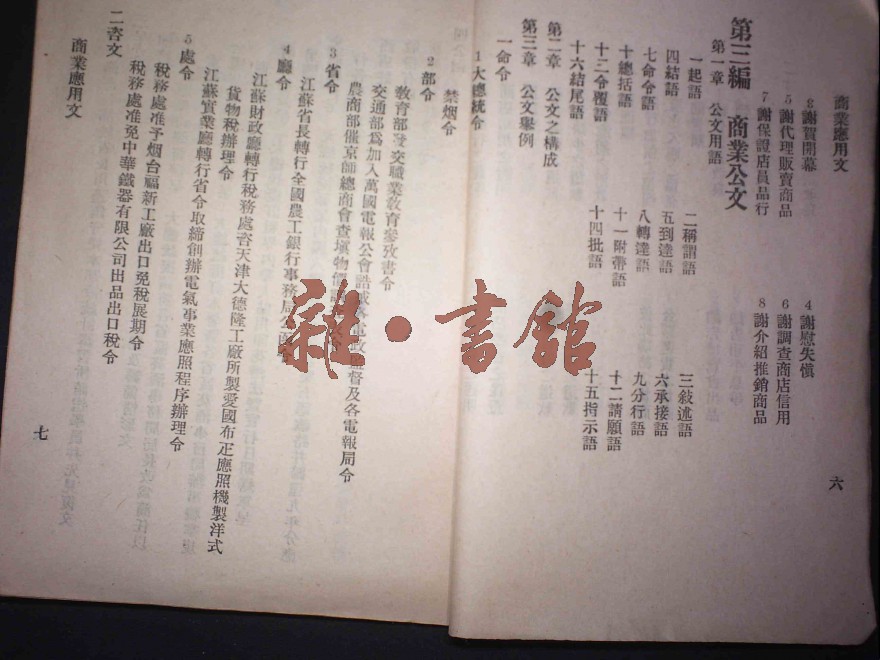 商業應用文
3 謝賀開幕
4 謝慰失慎
5 謝代理販賣商品
6 謝調查商店信用
7 謝保證店員品行
8 謝介紹推銷商品
第三編 商業公文
第一章 公文用語
一起語
二稱謂語
三敍述語
四結語
五到達語
六承接語
七命令語
八轉達語
九分行語
十總括語
十一附帶語
十二請願語
十三令覆語
十四批語
十五指示語
十六結尾語
第二章 公文之構成
第三章 公文舉例
一命令
1 大總統令
禁烟令
六
2 部令
教育部發交職業教育參攷書令
交通部爲加入萬國電報公會誥誡各電政監督及各電報局令
農商部催京師總商會查塡物價
3 省令
江蘇省長轉行全國農工銀行事務局
4 廳令
江蘇財政廳轉行稅務處咨天津大德隆工廠所製愛國布疋應照機製洋式
貨物稅辦理令
江蘇實業廳轉行省令取締創辦電氣事業應照程序辦理令
5 處令
稅務處准予烟台福新工廠出口免稅展期令
稅務處准免中華鐵器有限公司出品出口稅令
二咨文
商業應用文
七
雜·書館